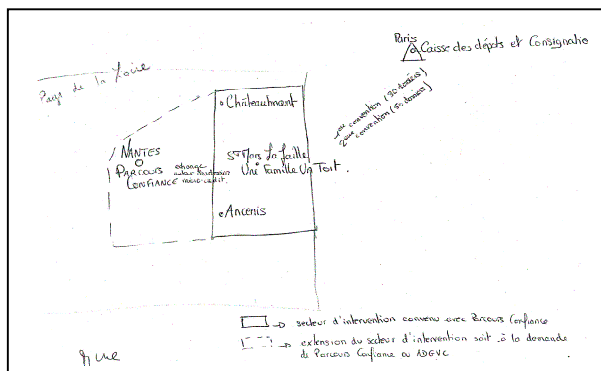 Paris
Caisse des dépôts et Consignatio
Pays de la Loire
1ère convention (30 dossiers)
2ème convention (50 dossiers)
Châteaubriant
NANTES
PARCOURS
CONFIANCE micro-crédit.
échange
St Mars La Jaille
Une Famille Un Toit.
Ancenis
→ secteur d'intervention convenu avec Parcours Confiance
→ extension du secteur d'intervention soit à la demande
de Parcours Confiance ou ADGVC